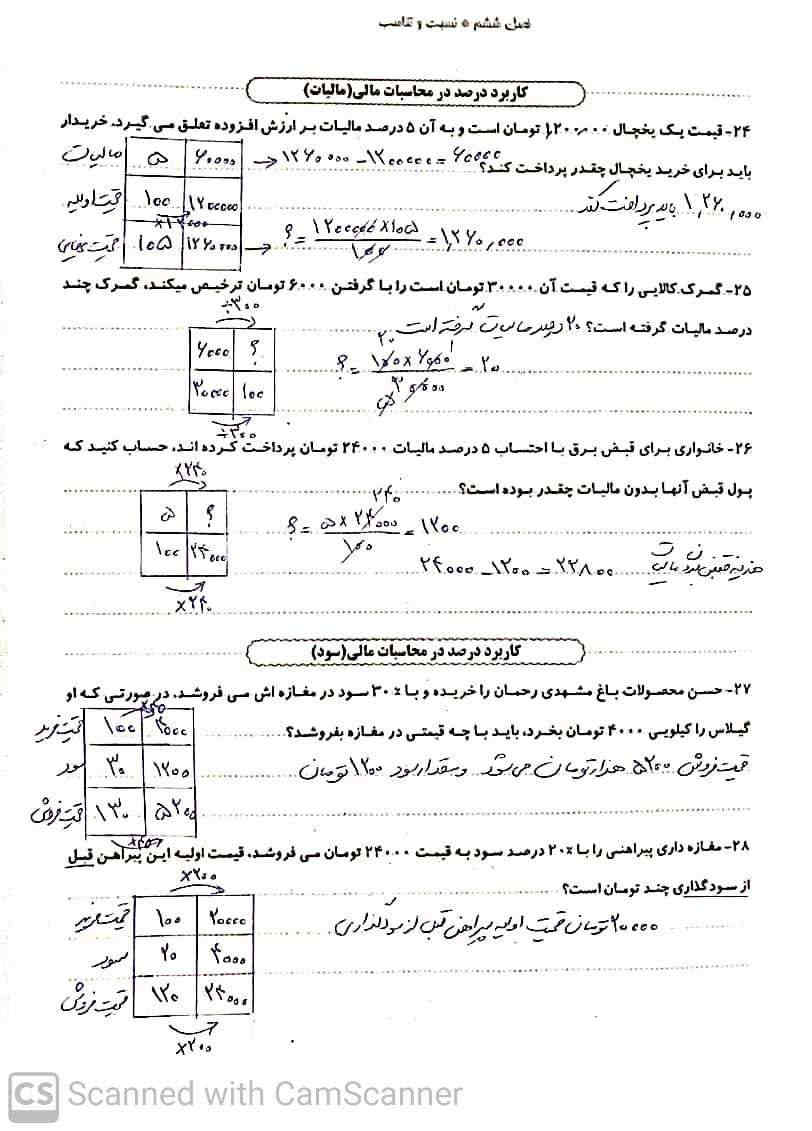 فصل ششم * نسبت و تناسب
کاربرد درصد در محاسبات مالی(مالیات)
۲۴- قیمت یک یخچال ۱,۲۰۰,۰۰۰ تومان است و به آن ۵ درصد مالیات بر ارزش افزوده تعلق می گیرد. خریدار
باید برای خرید یخچال چقدر پرداخت کند؟ ۱۲۶۰۰۰۰ - ۱۲۰۰۰۰۰ = ۶۰۰۰۰
مالیات ۵ ۶۰۰۰۰
۱,۲۶۰,۰۰۰ باید پرداخت کند
قیمت اولیه ۱۰۰ ۱۲۰۰۰۰۰
×۱۲۰۰۰
قیمت نهایی ۱۰۵ ۱۲۶۰۰۰۰ → ؟ = ۱۲۰۰۰۰۰×۱۰۵ / ۱۰۰ = ۱,۲۶۰,۰۰۰
۲۵- گمرک کالایی را که قیمت آن ۳۰۰۰۰ تومان است را با گرفتن ۶۰۰۰ تومان ترخیص میکند، گمرک چند
درصد مالیات گرفته است؟ ۲۰ درصد مالیات گرفته است
÷۳۰۰
۶۰۰۰ ؟
۳۰۰۰۰ ۱۰۰
؟ = ۱۰۰×۶۰۰۰ / ۳۰۰۰۰ = ۲۰
÷۳۰۰
۲۶- خانواری برای قبض برق با احتساب ۵ درصد مالیات ۲۴۰۰۰ تومان پرداخت کرده اند، حساب کنید که
پول قبض آنها بدون مالیات چقدر بوده است؟
×۲۴۰
۵ ؟
۱۰۰ ۲۴۰۰۰
؟ = ۵×۲۴۰۰۰ / ۱۰۰ = ۱۲۰۰
هزینه قبض بدون مالیات ۲۴۰۰۰ - ۱۲۰۰ = ۲۲۸۰۰
×۲۴۰
کاربرد درصد در محاسبات مالی(سود)
۲۷- حسن محصولات باغ مشهدی رحمان را خریده و با ۳۰٪ سود در مغازه اش می فروشد، در صورتی که او
گیلاس را کیلویی ۴۰۰۰ تومان بخرد، باید با چه قیمتی در مغازه بفروشد؟
قیمت خرید ۱۰۰ ۴۰۰۰
سود ۳۰ ۱۲۰۰
قیمت فروش ۵۲۰۰ هزار تومان می شود و مقدار سود ۱۲۰۰ تومان
قیمت فروش ۱۳۰ ۵۲۰۰
۲۸- مغازه داری پیراهنی را با ۲۰٪ درصد سود به قیمت ۲۴۰۰۰ تومان می فروشد، قیمت اولیه این پیراهن قبل
از سودگذاری چند تومان است؟
×۲۰۰
قیمت خرید ۱۰۰ ۲۰۰۰۰
۲۰۰۰۰ تومان قیمت اولیه پیراهن قبل از سودگذاری
سود ۲۰ ۴۰۰۰
قیمت فروش ۱۲۰ ۲۴۰۰۰
×۲۰۰
CS Scanned with CamScanner